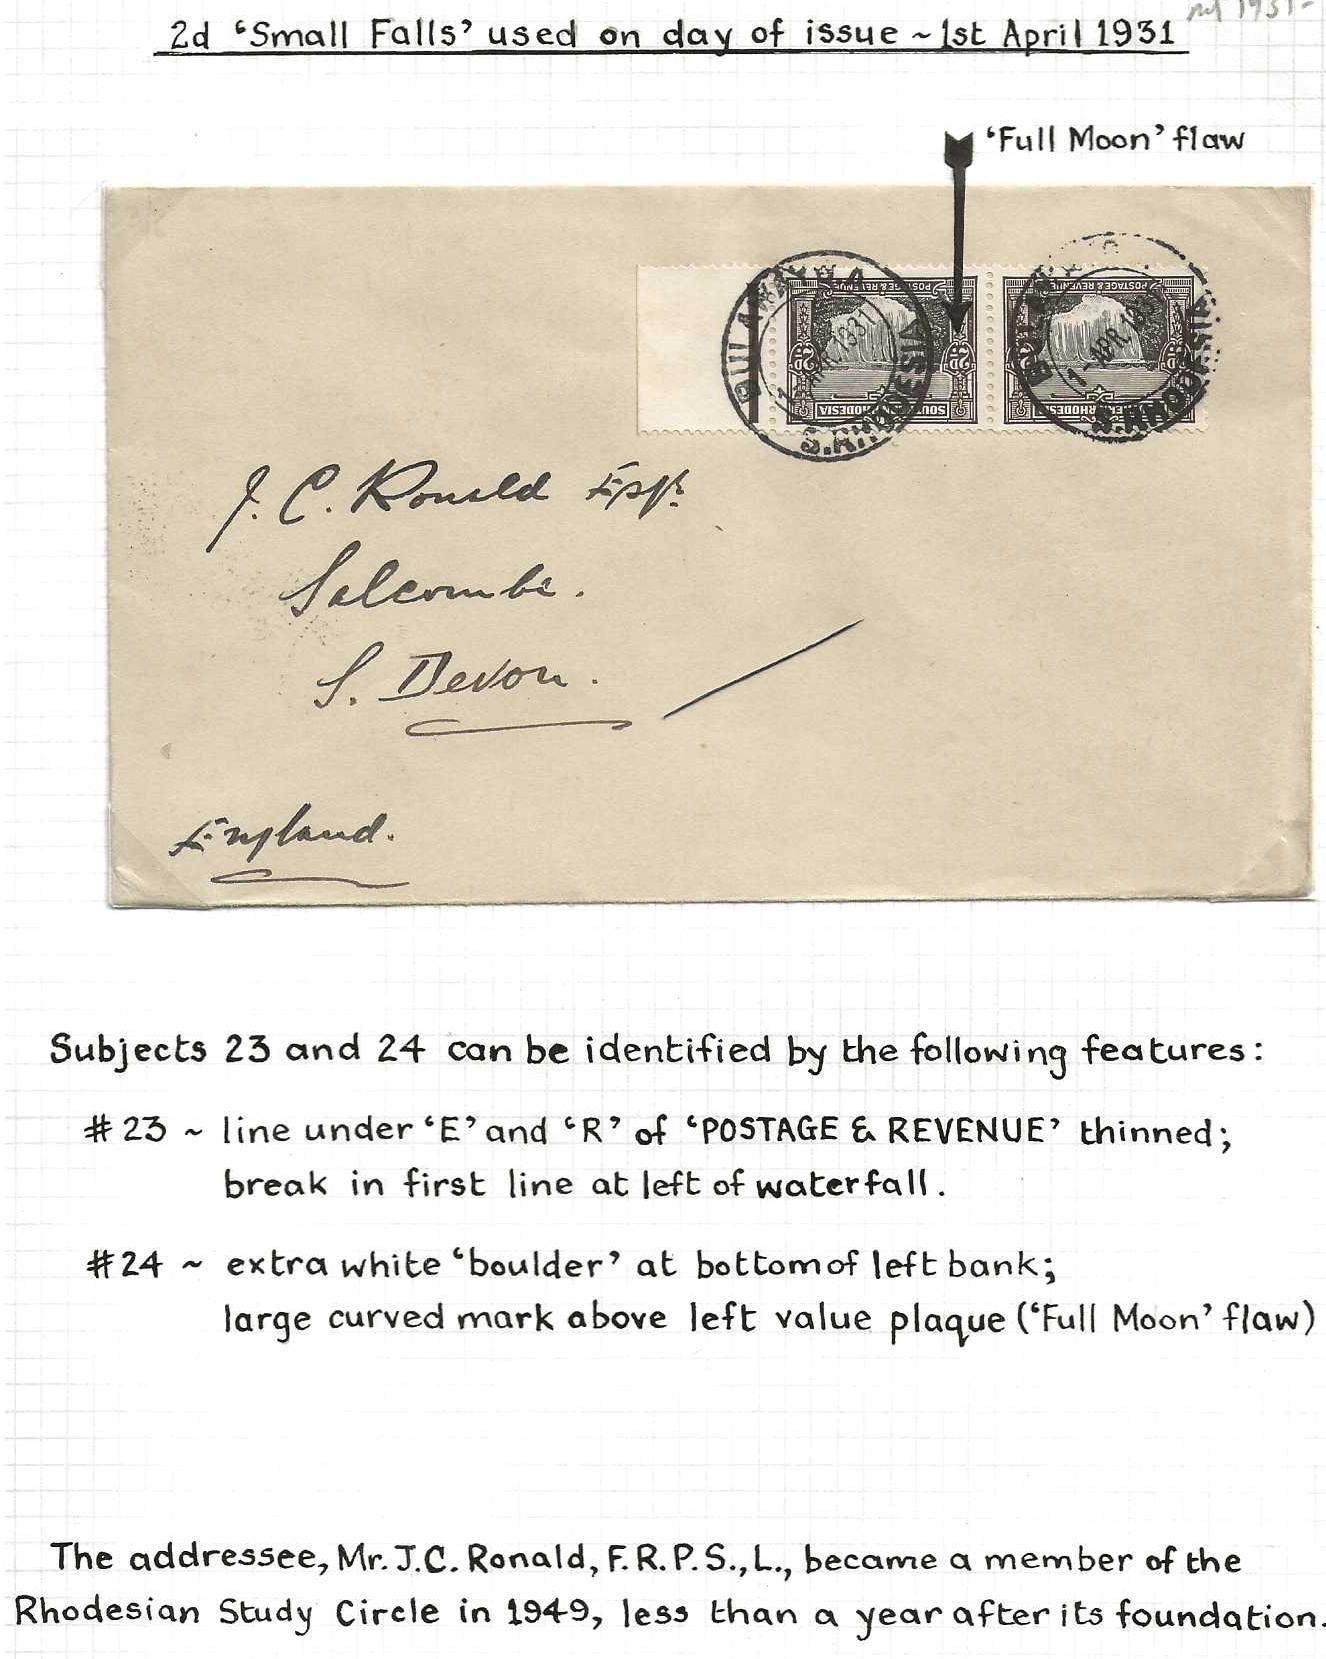 2d ‘Small Falls’ used on day of issue ~ 1st April 1931
‘Full Moon’ flaw
POSTAGE & REVENUE
POSTAGE & REVENUE
BULAWAYO
1 APR 1931
S. RHODESIA
BULAWAYO
1-APR 1931
S. RHODESIA
2D
2D
J. C. Ronald Esqr.
Salcombe.
S. Devon.
England.
Subjects 23 and 24 can be identified by the following features:
#23 ~ line under ‘E’ and ‘R’ of ‘POSTAGE & REVENUE’ thinned;
break in first line at left of waterfall.
#24 ~ extra white ‘boulder’ at bottom of left bank;
large curved mark above left value plaque (‘Full Moon’ flaw)
The addressee, Mr. J.C. Ronald, F.R.P.S.,L., became a member of the
Rhodesian Study Circle in 1949, less than a year after its foundation.